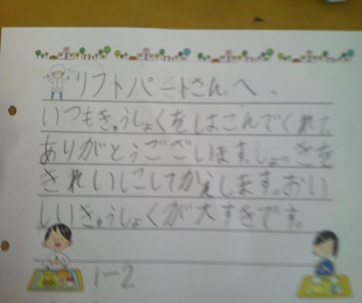 リフトパートさんへ、
いつもきゅうしょくをはこんでくれて
ありがとうございます。しょっきを
きれいにしてかえします。おい
しいきゅうしょくが大すきです。
1-2